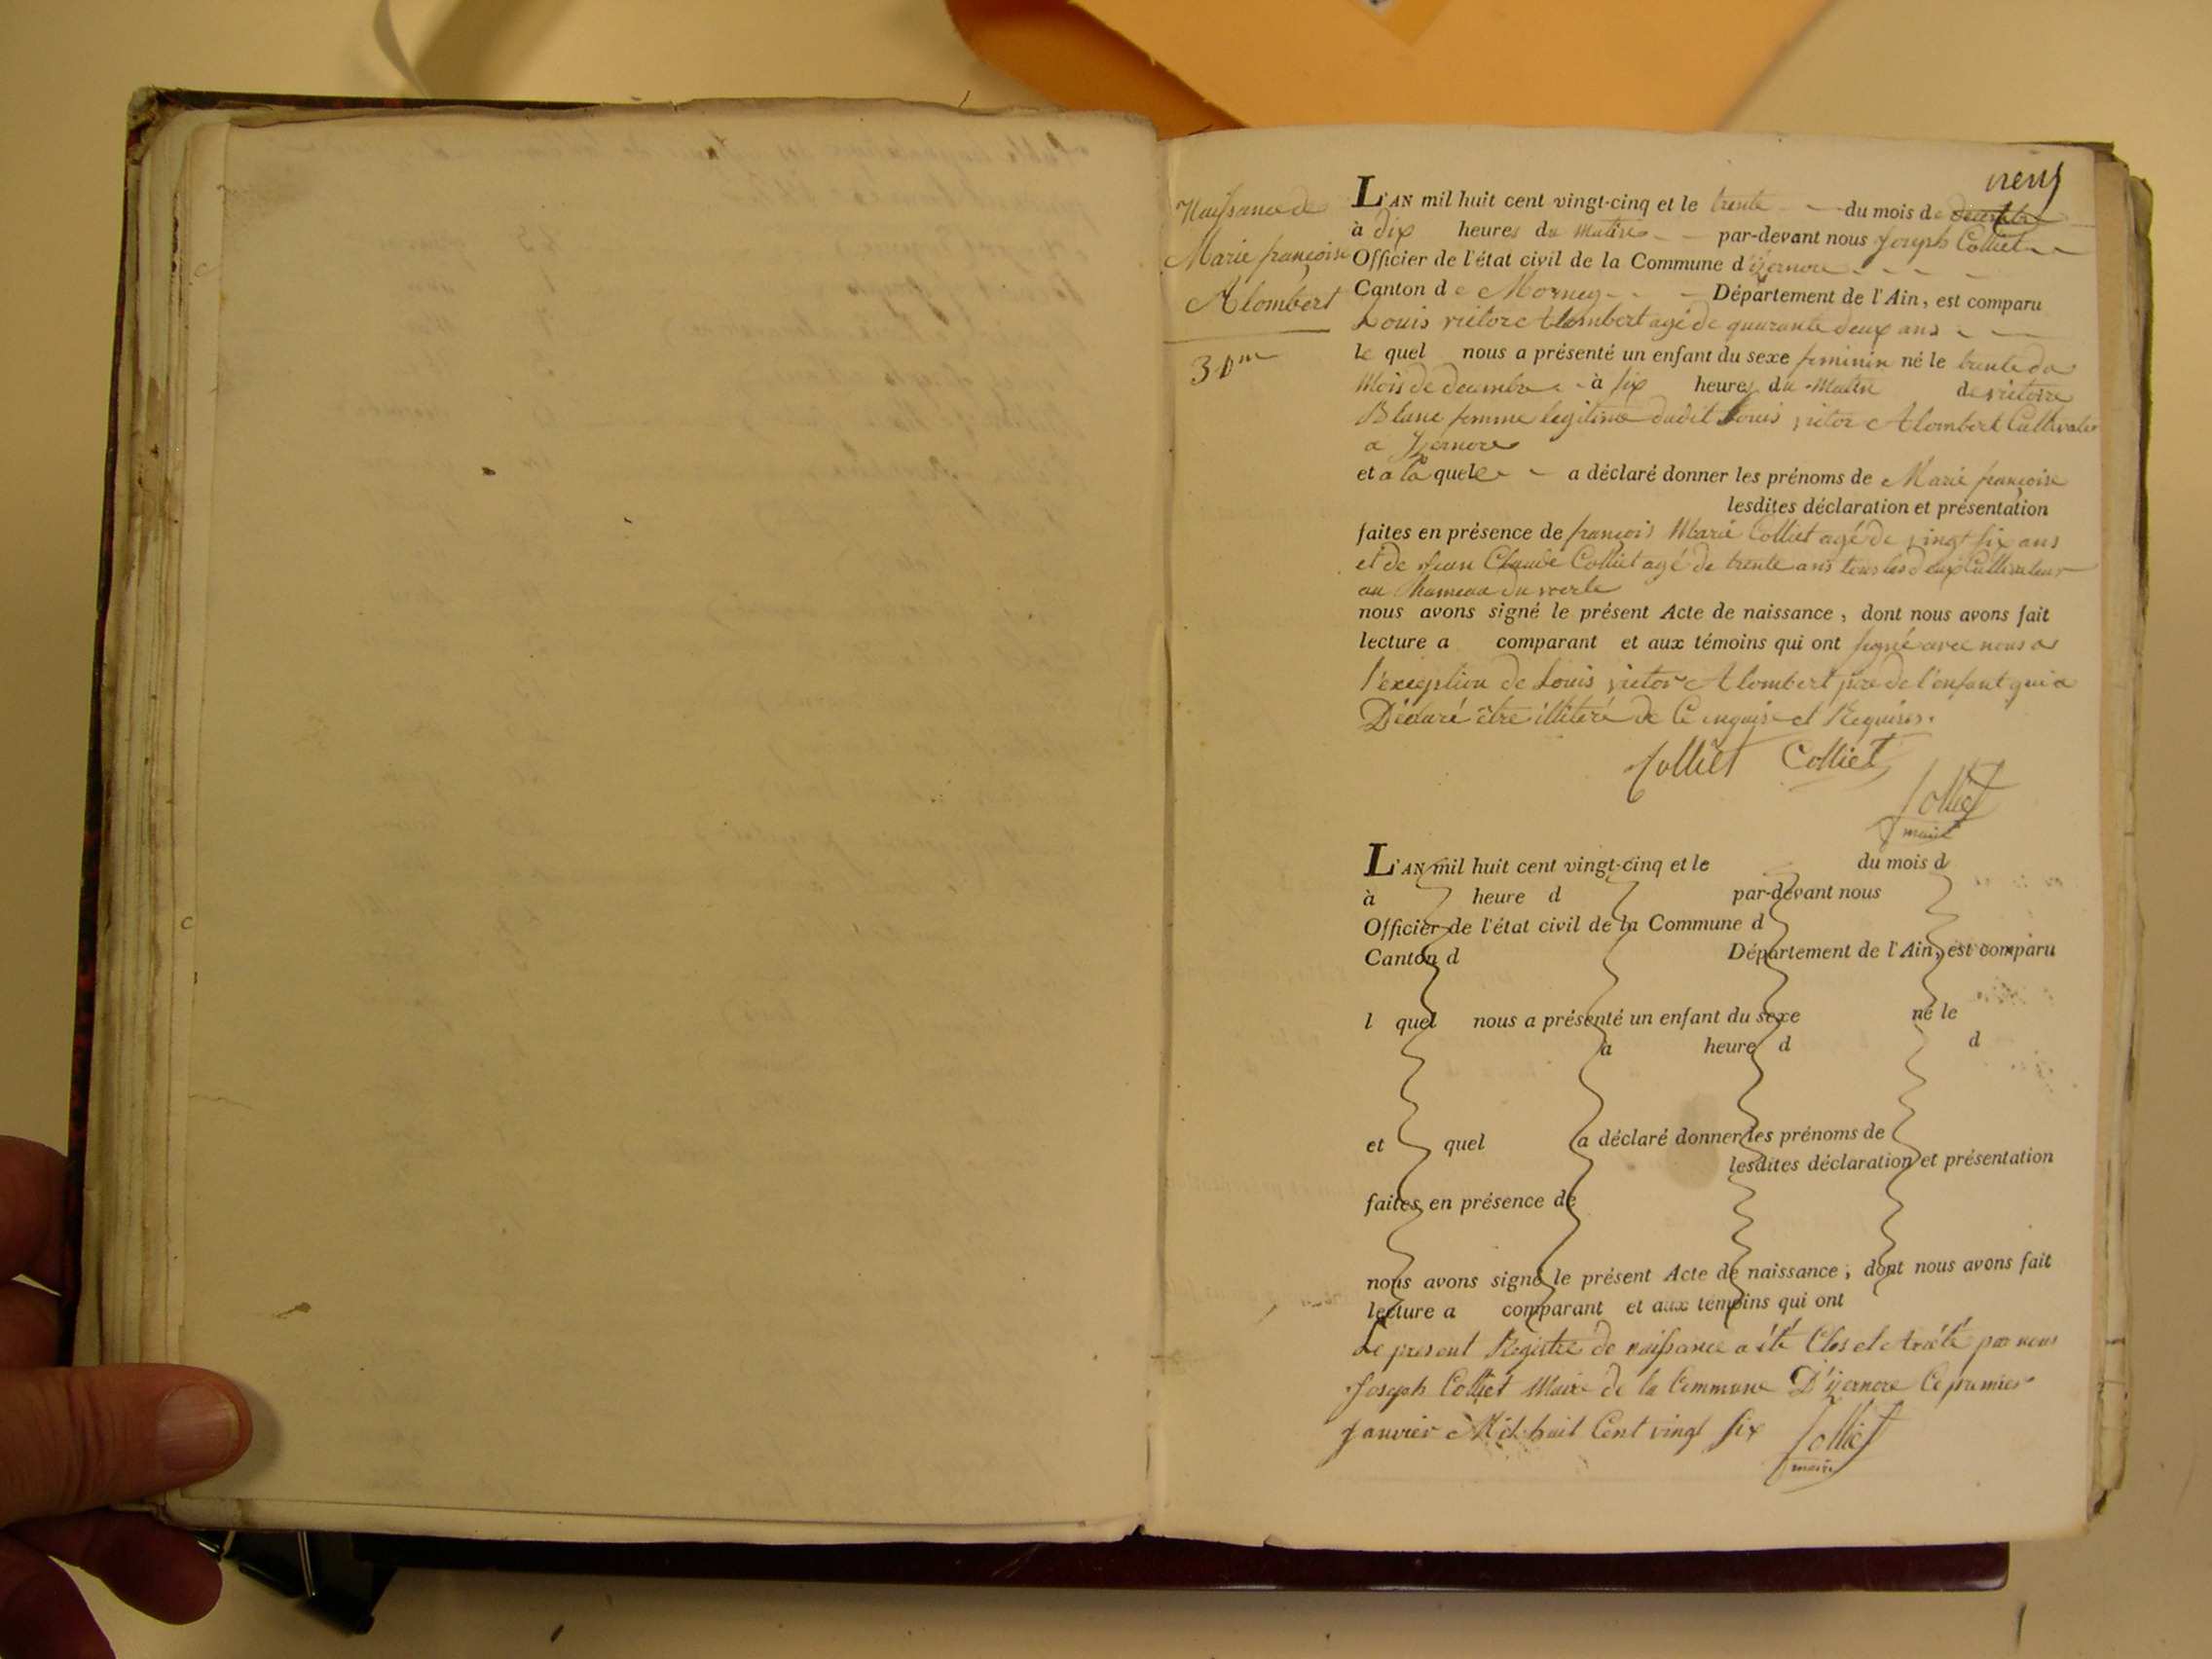 neuf
Naissance de
Marie françoise
Alombert
30me
L'AN mil huit cent vingt-cinq et le trente du mois de decembre
à dix heures du matin par-devant nous Joseph Colliet
Officier de l'état civil de la Commune d'izernore
Canton de Mornay Département de l'Ain, est comparu
Louis victor Alombert agé de quarante deux ans
le quel nous a présenté un enfant du sexe feminin né le trente du
mois de decembre à six heures du matin de victoire
Blanc femme legitime dudit Louis victor Alombert Cultivateur
a izernore
et a la quele a déclaré donner les prénoms de Marie françoise
lesdites déclaration et présentation
faites en présence de françois Marie Colliet agé de vingt six ans
et de Jean Claude Colliet agé de trente ans tous les deux Cultivateur
au hameau du
nous avons signé le présent Acte de naissance, dont nous avons fait
lecture a comparant et aux témoins qui ont signé avec nous a
l'exception de Louis victor Alombert pere de l'enfant qui a
Déclaré être illiteré de Ce enquis et Requis.
Colliet Colliet
Colliet
maire
L'AN mil huit cent vingt-cinq et le du mois d
à heure d par-devant nous
Officier de l'état civil de la Commune d
Canton d Département de l'Ain, est comparu
l quel nous a présenté un enfant du sexe né le
à heure d d
et quel a déclaré donner les prénoms de
lesdites déclaration et présentation
faites en présence de
nous avons signé le présent Acte de naissance, dont nous avons fait
lecture a comparant et aux témoins qui ont
Le present Registre de naissance a été Clos et Arrêté par nous
Joseph Colliet Maire de la Commune D'izernore Ce premier
Janvier Mil huit Cent vingt six Colliet
maire